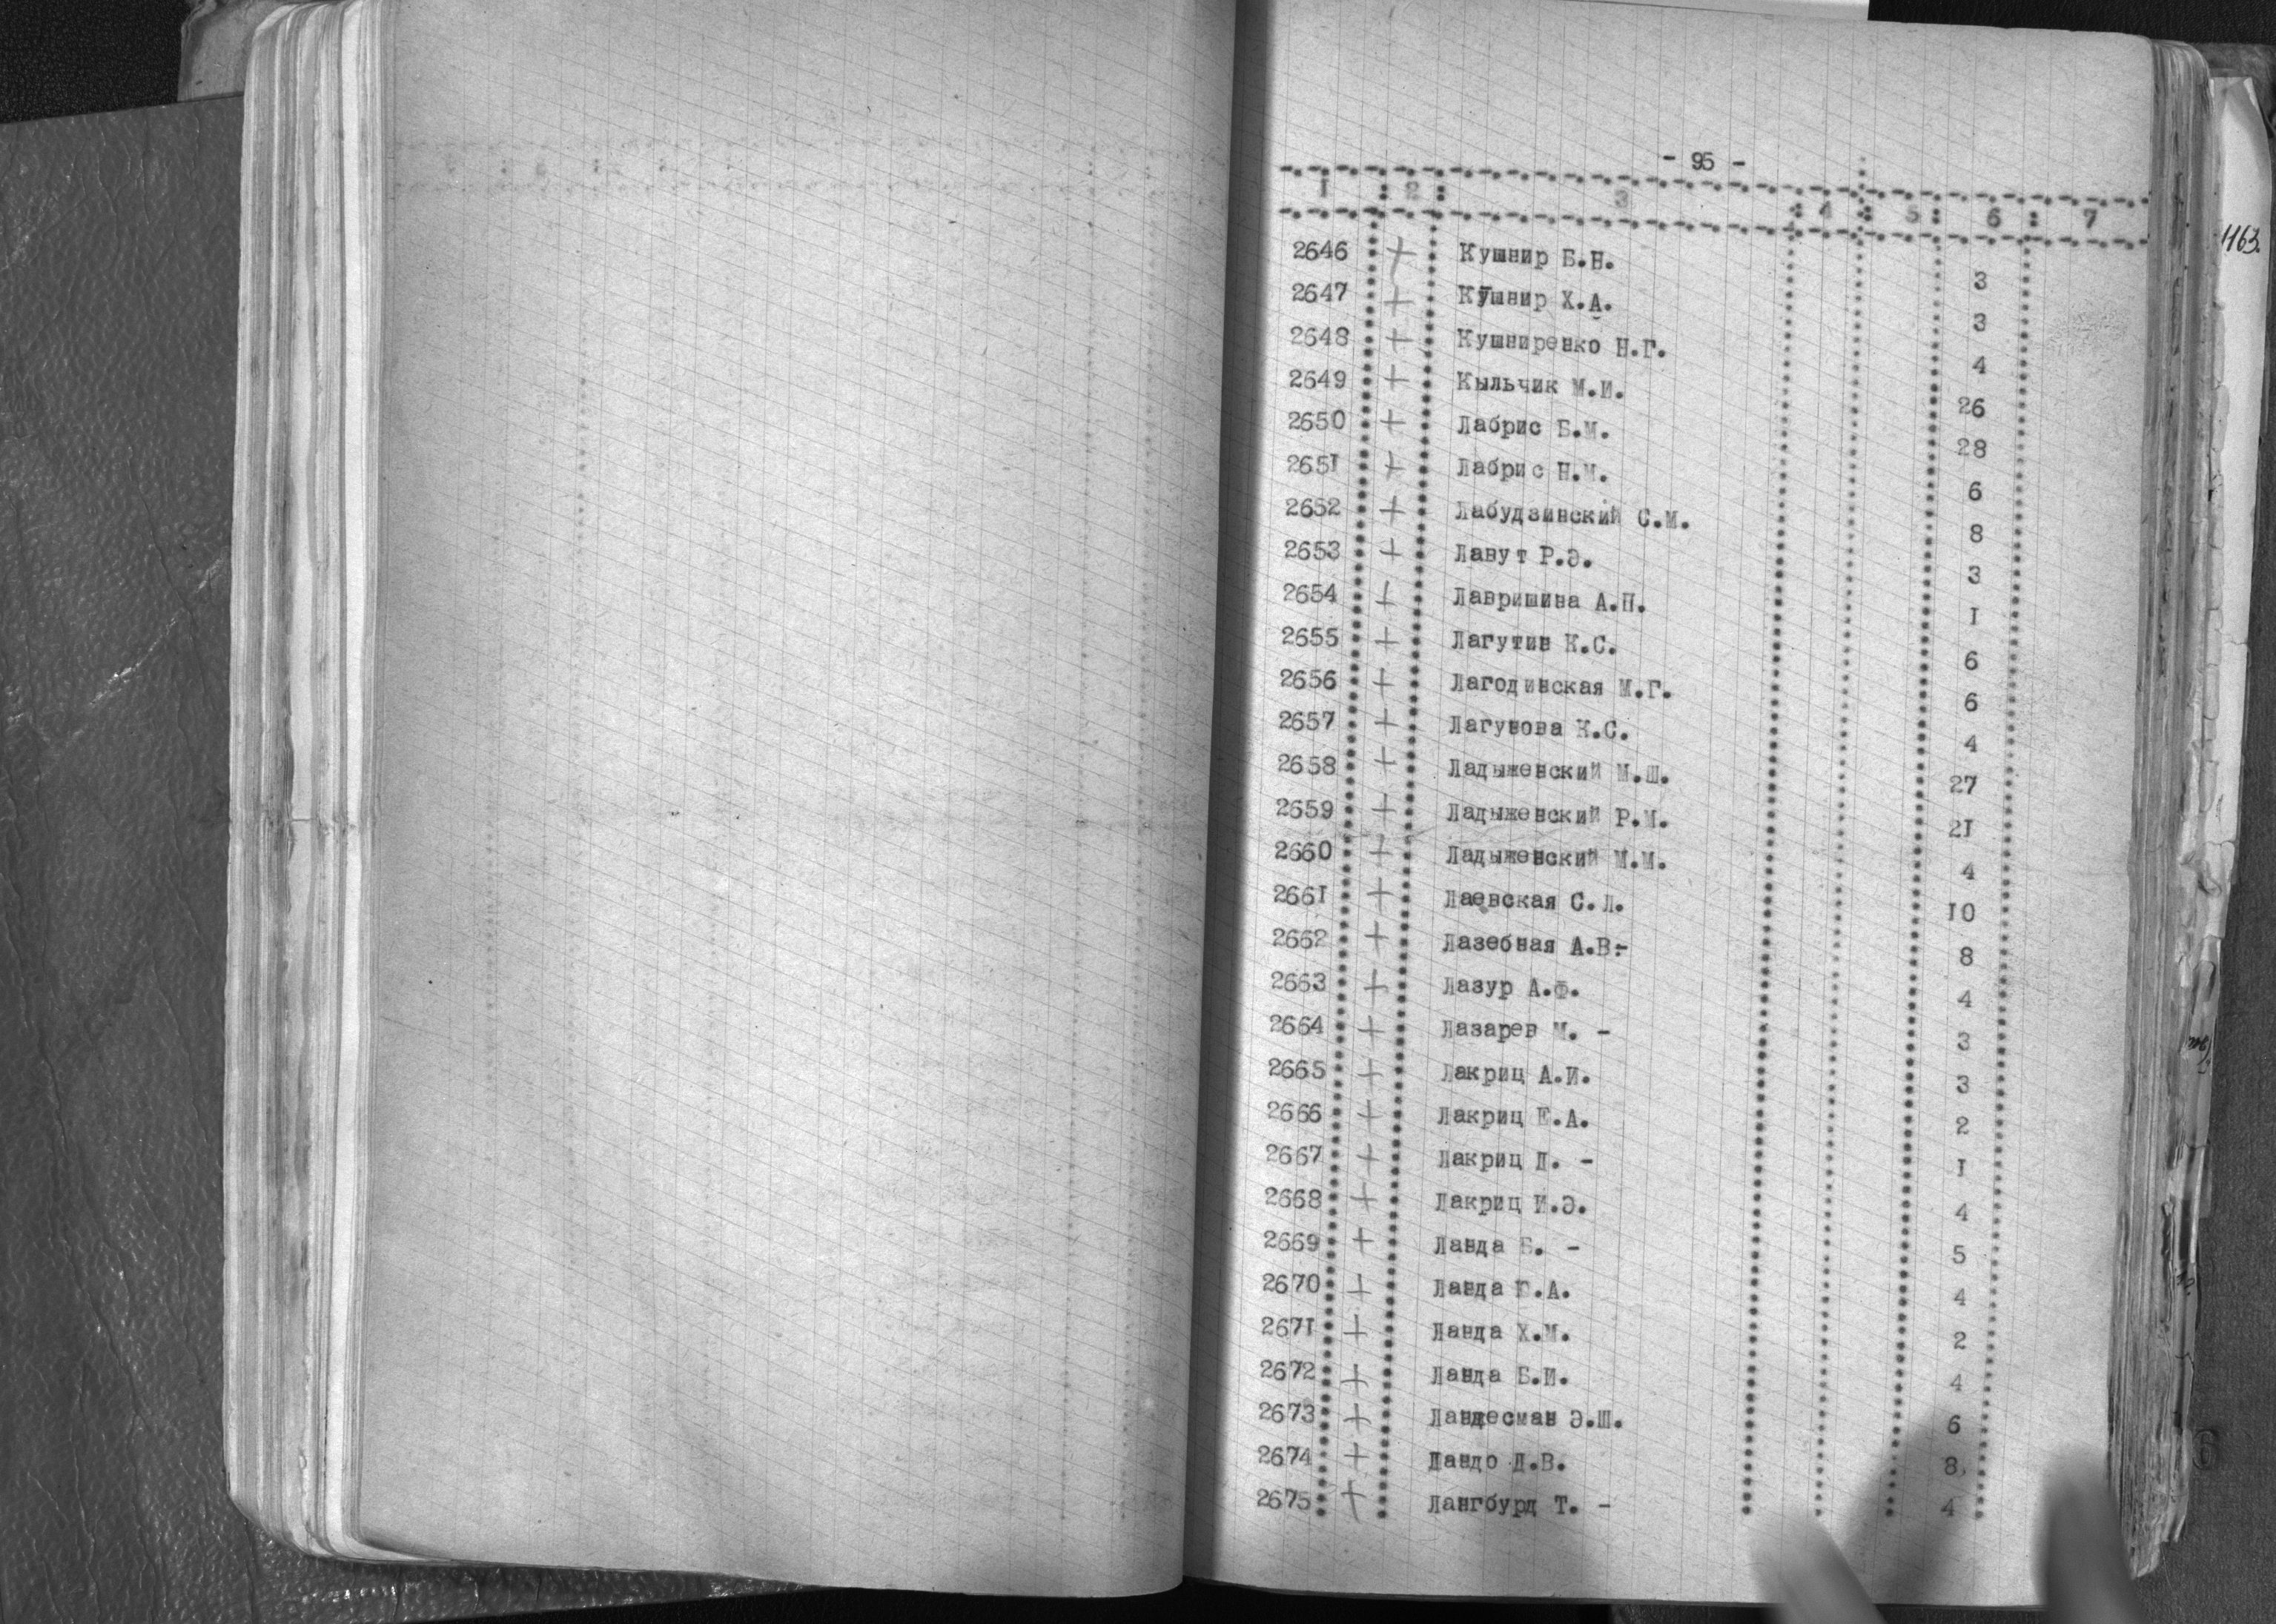 - 95 -
I : 2 : 3 : 4 : 5 : 6 : 7
1163.
2646 + Кушнир Б.Н. 3
2647 + Кушнир Х.А. 3
2648 + Кушниренко Н.Г. 4
2649 + Кыльчик М.И. 26
2650 + Лабрис Б.М. 28
265I + Лабрис Н.М. 6
2652 + Лабудзинский С.М. 8
2653 + Лавут Р.Э. 3
2654 + Лавришина А.П. I
2655 + Лагутин К.С. 6
2656 + Лагодинская М.Г. 6
2657 + Лагунова К.С. 4
2658 + Ладыженский М.Ш. 27
2659 + Ладыженский Р.М. 2I
2660 + Ладыженский М.М. 4
266I + Лаевская С.Л. I0
2662 + Лазебная А.В.- 8
2663 + Лазур А.Ф. 4
2664 + Лазарев М. - 3
2665 + Лакриц А.И. 3
2666 + Лакриц Е.А. 2
2667 + Лакриц Д. - I
2668 + Лакриц И.Э. 4
2669 + Ланда Б. - 5
2670 + Ланда Г.А. 4
267I + Ланда Х.М. 2
2672 + Ланда Б.И. 4
2673 + Ландесман Э.Ш. 6
2674 + Ландо Д.В. 8
2675 + Лангбурд Т. - 4